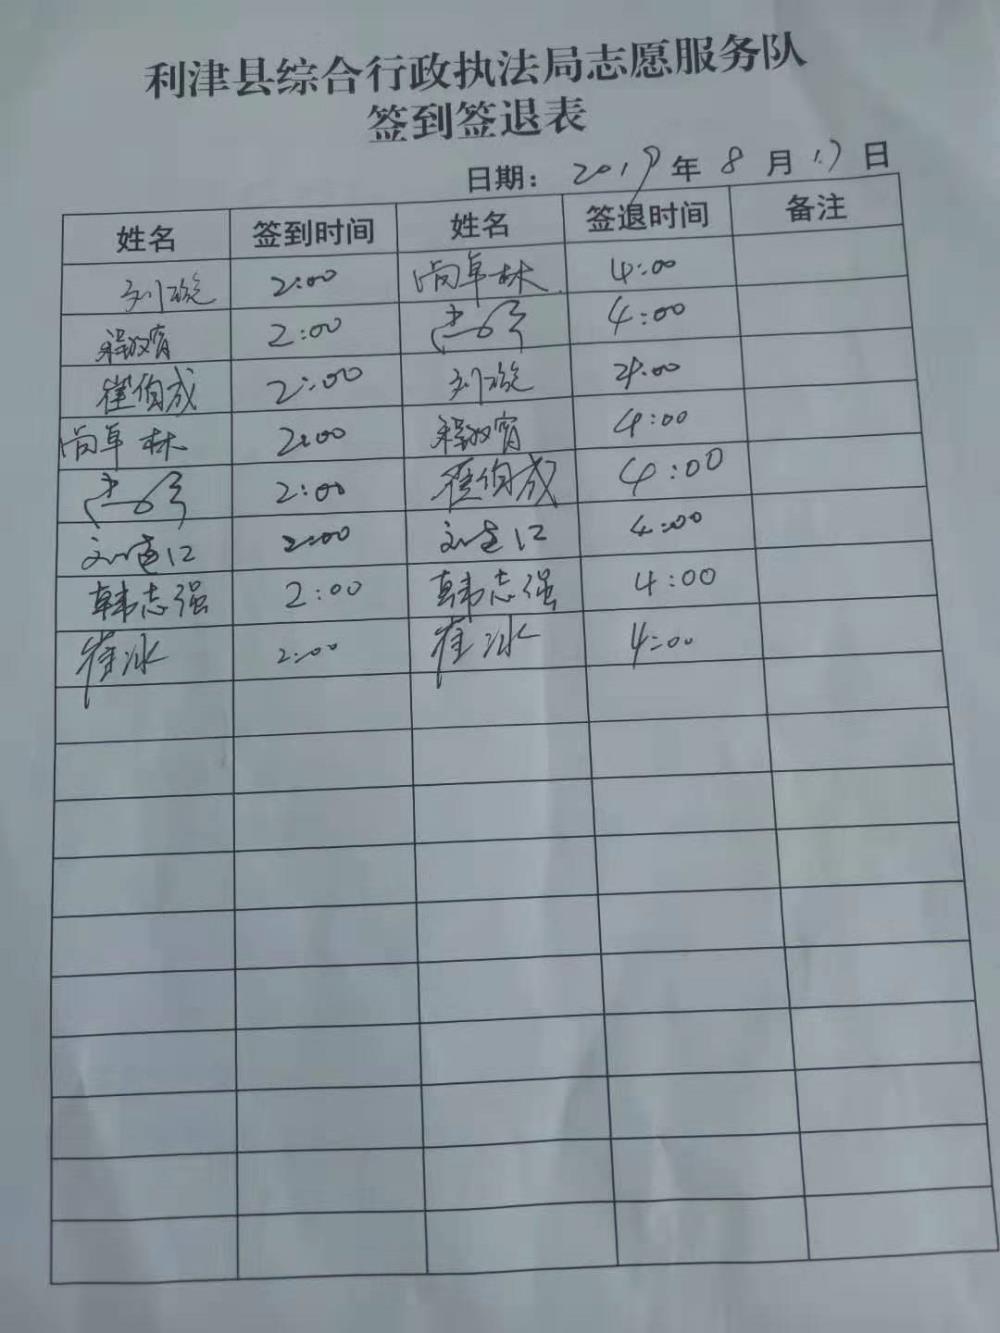 利津县综合行政执法局志愿服务队
签到签退表
日期：2019年8月17日
姓名 签到时间 姓名 签退时间 备注
刘璇 2:00 尚卓林 4:00
2:00 4:00
崔伯成 2:00 刘璇 4:00
尚卓林 2:00 4:00
2:00 崔伯成 4:00
2:00 4:00
韩志强 2:00 韩志强 4:00
崔冰 2:00 崔冰 4:00